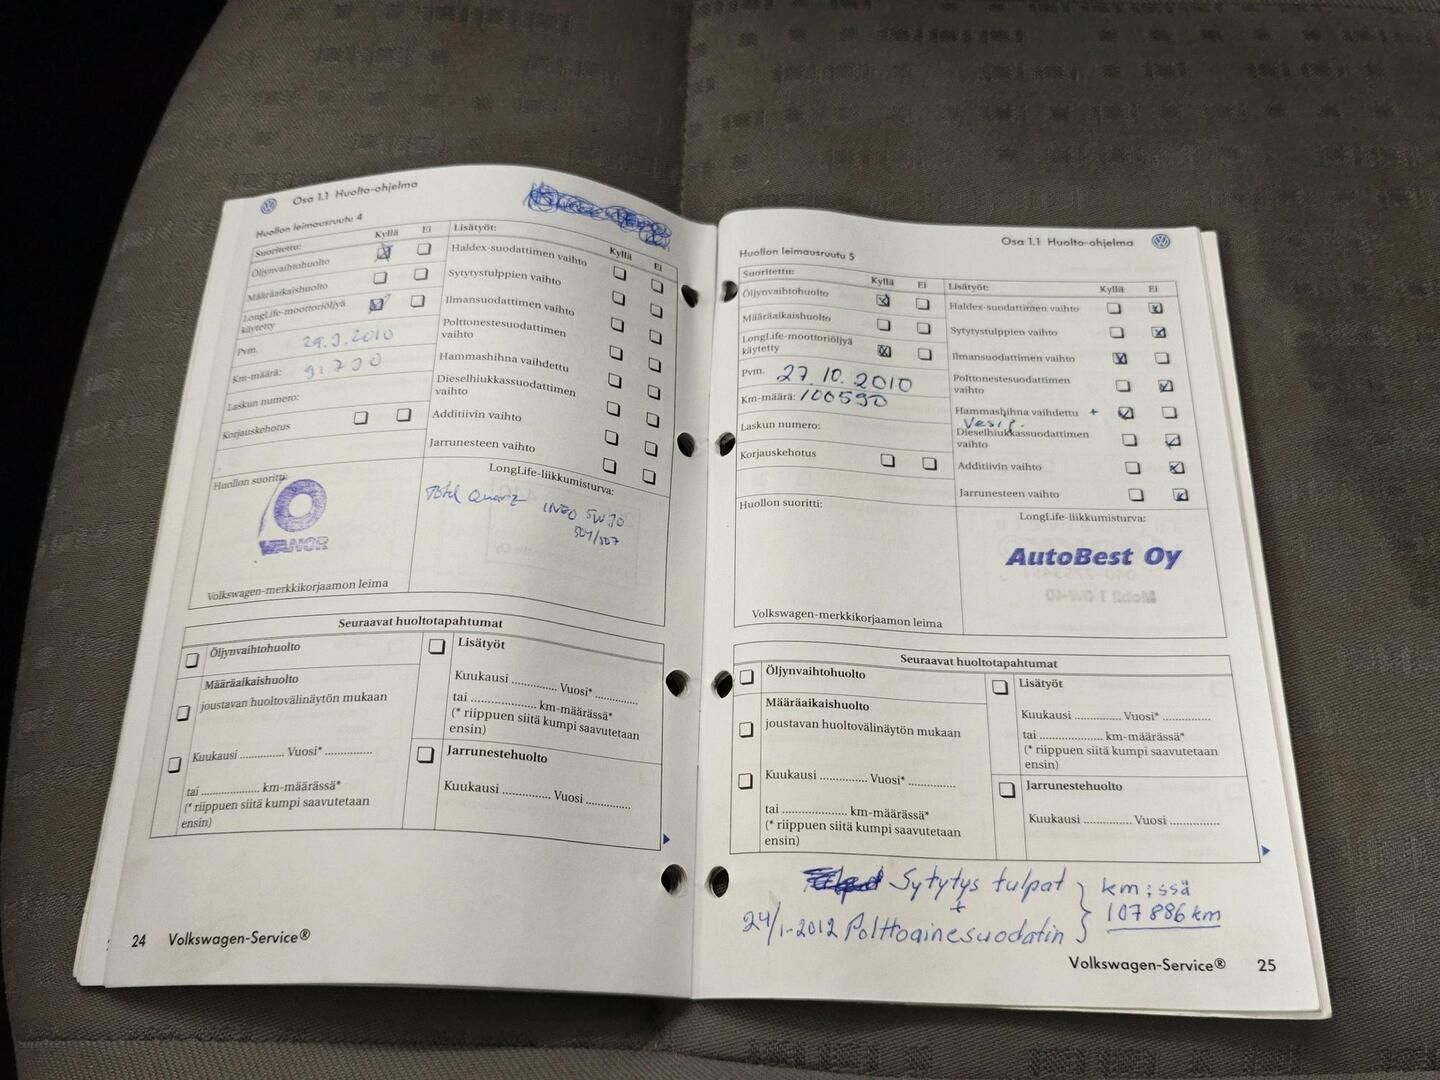 Osa 1.1 Huolto-ohjelma
Huollon leimausruutu 4
Suoritettu:
Kyllä
Ei
Öljynvaihtohuolto
Määräaikaishuolto
LongLife-moottoriöljyä
käytetty
Pvm.
29.9.2010
Km-määrä:
Laskun numero:
Korjauskehotus
Huollon suoritti:
WANOR
Volkswagen-merkkikorjaamon leima
Lisätyöt:
Kyllä
Ei
Haldex-suodattimen vaihto
Sytytystulppien vaihto
Ilmansuodattimen vaihto
Polttonestesuodattimen
vaihto
Hammashihna vaihdettu
Dieselhiukkassuodattimen
vaihto
Additiivin vaihto
Jarrunesteen vaihto
LongLife-liikkumisturva:
Total Quartz INEO 5W30
504/507
Seuraavat huoltotapahtumat
Öljynvaihtohuolto
Määräaikaishuolto
joustavan huoltovälinäytön mukaan
Kuukausi ............. Vuosi* ..............
tai .................... km-määrässä*
(* riippuen siitä kumpi saavutetaan
ensin)
Lisätyöt
Kuukausi .............. Vuosi* .............
tai ..................... km-määrässä*
(* riippuen siitä kumpi saavutetaan
ensin)
Jarrunestehuolto
Kuukausi .............. Vuosi .............
24 Volkswagen-Service®
Osa 1.1 Huolto-ohjelma
Huollon leimausruutu 5
Suoritettu:
Kyllä
Ei
Öljynvaihtohuolto
Määräaikaishuolto
LongLife-moottoriöljyä
käytetty
Pvm. 27.10.2010
Km-määrä: 100590
Laskun numero:
Korjauskehotus
Huollon suoritti:
Volkswagen-merkkikorjaamon leima
Lisätyöt:
Kyllä
Ei
Haldex-suodattimen vaihto
Sytytystulppien vaihto
Ilmansuodattimen vaihto
Polttonestesuodattimen
vaihto
Hammashihna vaihdettu +
Vesip.
Dieselhiukkassuodattimen
vaihto
Additiivin vaihto
Jarrunesteen vaihto
LongLife-liikkumisturva:
AutoBest Oy
Seuraavat huoltotapahtumat
Öljynvaihtohuolto
Määräaikaishuolto
joustavan huoltovälinäytön mukaan
Kuukausi .............. Vuosi* ..............
tai ..................... km-määrässä*
(* riippuen siitä kumpi saavutetaan
ensin)
Lisätyöt
Kuukausi .............. Vuosi* ..............
tai ..................... km-määrässä*
(* riippuen siitä kumpi saavutetaan
ensin)
Jarrunestehuolto
Kuukausi .............. Vuosi ..............
Sytytys tulpat
+
24/1-2012 Polttoainesuodatin
km:ssä
107886 km
Volkswagen-Service® 25